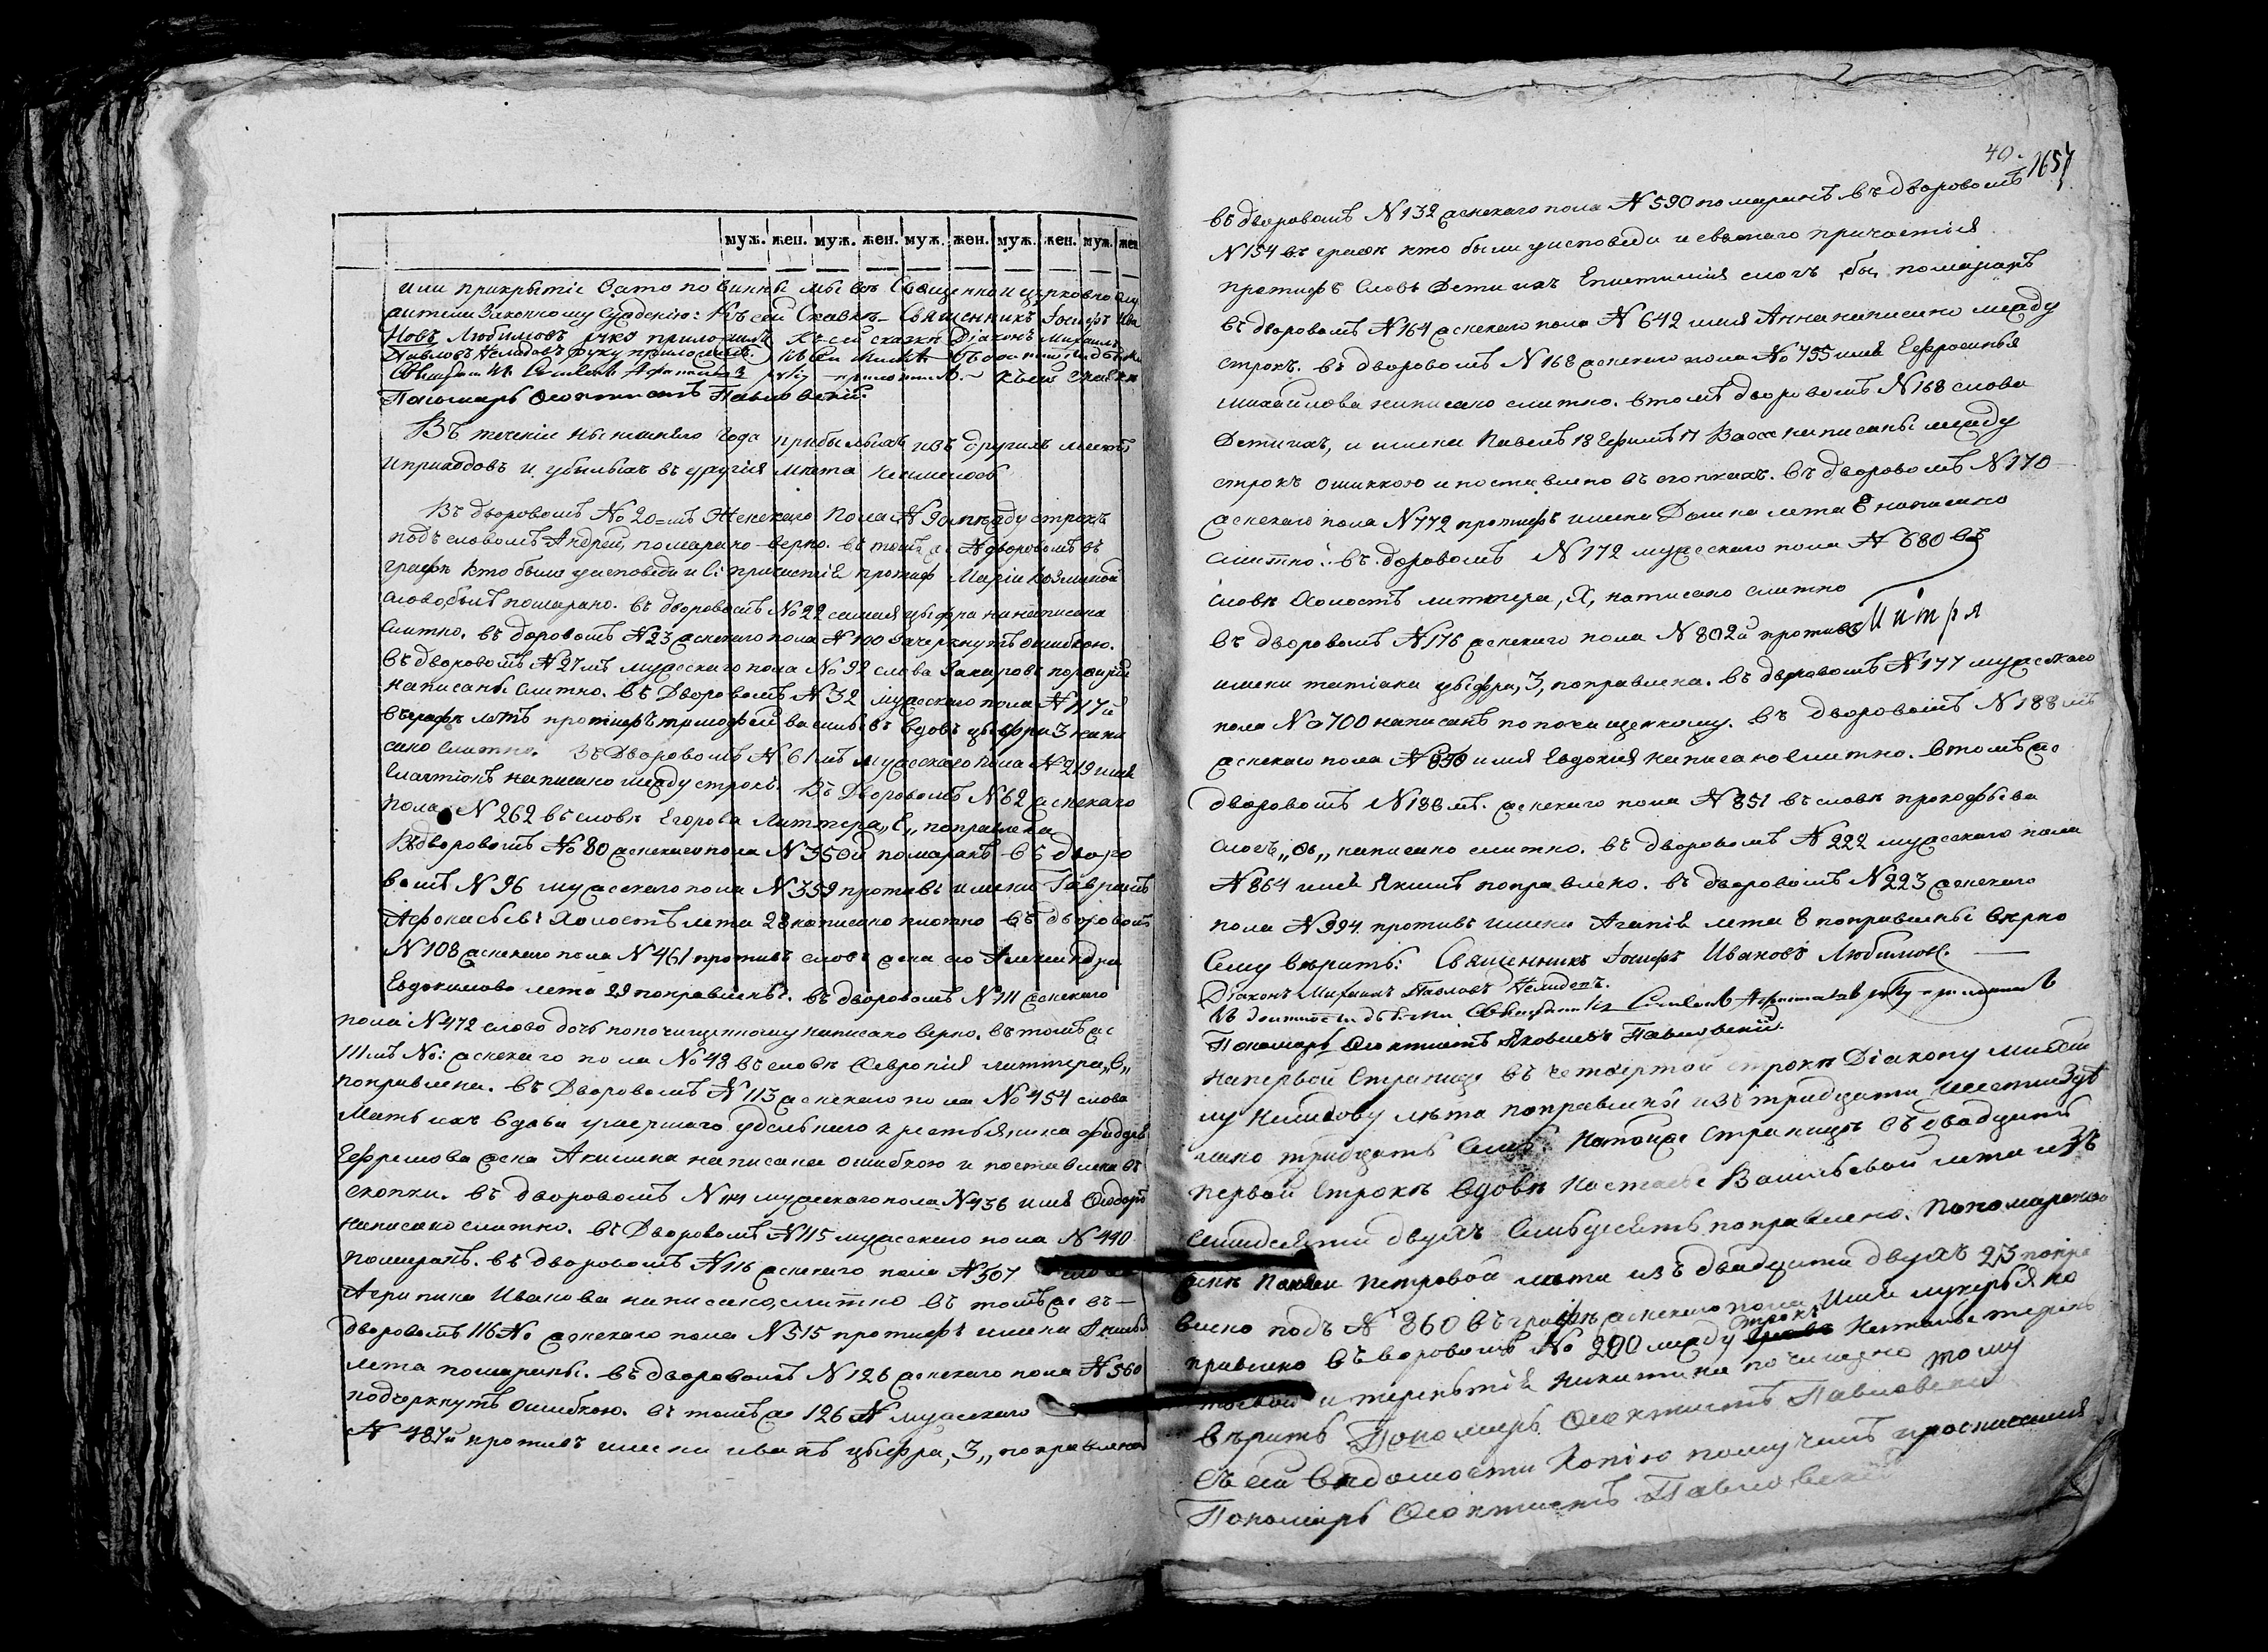 муж. жен. муж. жен. муж. жен. муж. жен. муж. жен
или прикрытіе Зато повинны мы всѣ Священно и церковно слу
жители Законному Суждению: Къ сей Сказкѣ Священникъ Іосифъ Ива
новъ Любимовъ руку приложилъ Къ сей сказкѣ Діаконъ Михаилъ
Павловъ Нелидовъ руку приложилъ.
руку приложилъ. къ сей сказкѣ
Пономарь Ѳеоктистъ Павловскій.
Въ теченіе нынѣшняго года прибылыхъ изъ другихъ мѣстъ
и приходовъ и убылыхъ въ другія мѣста неимелось
Въ дворовомъ No 20=мъ Женскаго Пола N 90 между строкъ
подъ словомъ Андрей, помарано верно. въ томъ же N дворовомъ въ
графѣ кто были у исповеди и с: причастія противъ Маріи Козминой
слово, былъ помарано. въ дворовомъ No 22 самая цыфра написана
слитно. въ дворовомъ N 23 женскаго пола N 100 зачеркнутъ ошибкою.
въ дворовомъ N 27мъ мужескаго пола No 92 слова Захаровъ порфирій
написаны слитно. въ Дворовомъ N 32 мужескаго пола N 117й
въ графѣ летъ противъ тимофей васильевъ вдовъ цыфра 3 напи
сано слитно. Въ Дворовомъ N 61мъ Мужескаго пола N 219 имя
написано между строкъ. Въ Дворовомъ N 62 женскаго
пола N 262 въ словѣ Егорова Литтера „Е„ поправлена
Въ дворовомъ No 80 женскаго пола N 350й помаранъ въ дворо
вомъ N 96 мужескаго пола N 359 противъ имени Гаврилъ
Афонасьевъ Холостъ лета 28 написано плотно въ дворовомъ
N 108 женскаго пола N 461 противъ словъ жена его Александра
Евдокимова лета 29 поправлены. въ дворовомъ N 111 женскаго
пола N 472 слово дочь попочищенному написано верно. въ томъ же
111мъ No: женскаго пола No 48 въ словѣ Февронія литтера „
поправлена. въ Дворовомъ N 113 женскаго пола No 454 слова
Мать ихъ вдова умершаго удельнаго крестьянина
Ефремова жена Акилина написана ошибкою и поставлена въ
скопки. въ дворовомъ N 114 мужескаго пола N 436 имя Ѳедоръ
написано слитно. въ Дворовомъ N 115 мужескаго пола N 440
помаранъ. въ дворовомъ N 116 женскаго пола N 507
Агрипина Иванова написано слитно въ томъ же въ
дворовомъ 116 No женскаго пола N 515 противъ имени
лета помараны. въ дворовомъ N 126 женскаго пола N 560
подчеркнутъ ошибкою. въ томъ же 126 N мужескаго
N 487й противъ имени иванъ цыфра, 3„ поправлена
40. 1657
въ дворовомъ N 132 женскаго пола N 590 помаранъ въ дворовомъ
N 154 въ графѣ кто были у исповеди и святаго причастія
противъ Словъ Дети ихъ Епистимія слогъ бы, помаранъ
въ дворовомъ N 164 женскаго пола N 642 имя Анна написано между
строкъ. въ дворовомъ N 168 женскаго пола No 755 имя Ефросинья
михайлова написано слитно. в томъ дворовомъ N 168 слова
Дети ихъ, и имена Павелъ 18 Ефимъ 17 написаны между
строкъ ошиккою и поставлено въ скопкахъ. въ дворовомъ N 170
женскаго пола N 772 противъ имени Домна лета 8 написано
слитно. въ дворовомъ N 172 мужескаго пола N 680 въ
словѣ Холостъ литтера, Х, написано слитно
въ дворовомъ N 176 женскаго пола N 802й противъ
имени татіана цыфра, 3, поправлена. въ дворовомъ N 177 мужескаго
пола No 700 написанъ попочищенному. въ дворовомъ N 188мъ
женскаго пола N 850 имя Евдокия написано слитно. в томъ же
дворовомъ N 188мъ. женскаго пола N 851 въ словѣ прокофьева
слогъ „фь„ написано слитно. въ дворовомъ N 222 мужескаго пола
N 864 имя Якимъ поправлено. въ дворовомъ N 223 женскаго
пола N 994. противъ имени Агапія лета 8 поправлены вѣрно
Сему вѣрить: Священникъ Іосифъ Ивановъ Любимовъ.
Діаконъ Михаилъ Павловъ Нелидовъ.
руку приложилъ
Пономарь Ѳеоктистъ Яковлевъ Павловскій.
На первой Странице въ четвертой строкѣ Діакону Михаи
лу Нелидову лѣта поправлены изъ тридцати шести
тридцать Семь. На тойже Странице въ двадцать
первой Строкѣ Вдовѣ Настасье Васильевой лета изъ
Семидесяти двухъ Семьдесять поправлено. Пономарской
женѣ Петровой лета изъ двадцати двухъ 23 попра
влено подъ N 860 въ графѣ женскаго пола Имя лукерья по
правлено въ дворовомъ No 200 между строкъ
и терентія никитина почищено тому
вѣрить Пономарь Ѳеоктистъ Павловскій
Съ сей ведомости Копію получилъ
Пономарь Ѳеоктистъ Павловскій